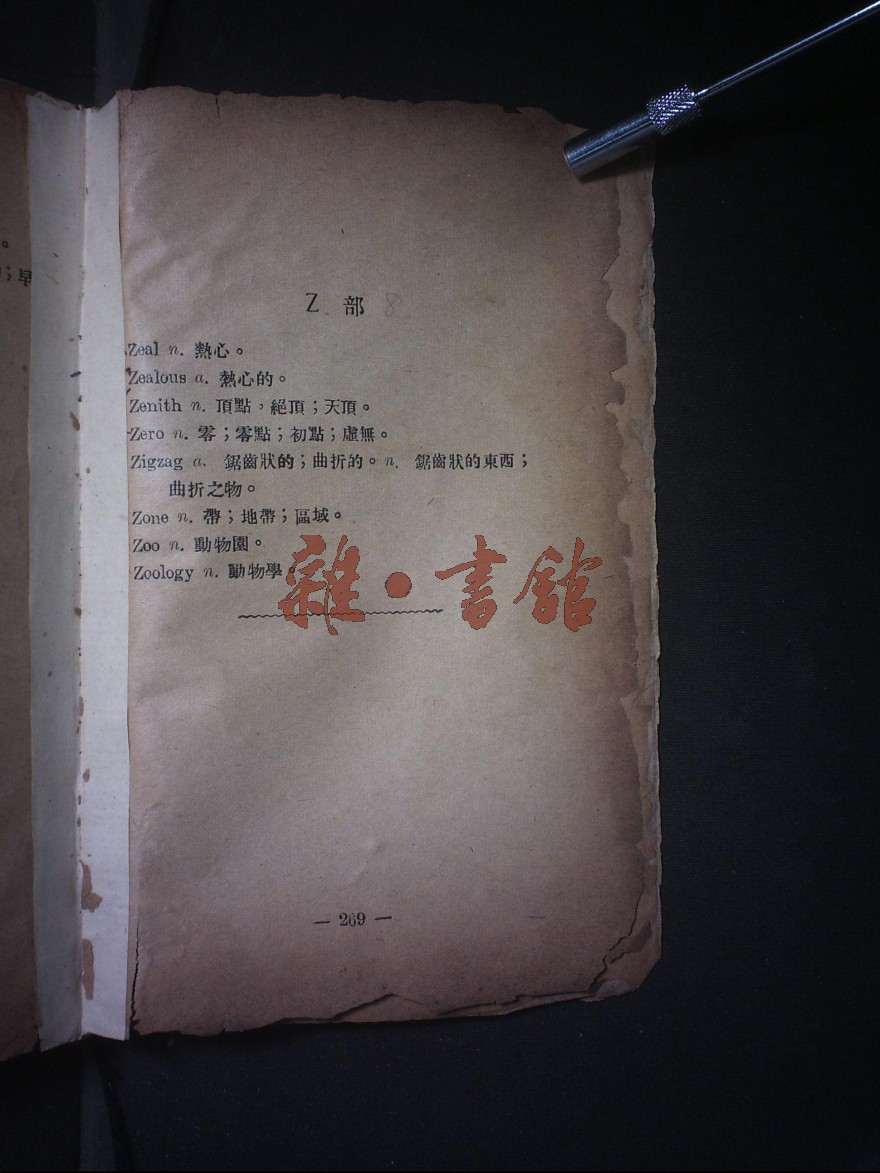 。
；早
Z 部 8
Zeal n. 熱心。
Zealous a. 熱心的。
Zenith n. 頂點，絕頂；天頂。
Zero n. 零；零點；初點；虛無。
Zigzag a. 鋸齒狀的；曲折的。n. 鋸齒狀的東西；
曲折之物。
Zone n. 帶；地帶；區域。
Zoo n. 動物園。
Zoology n. 動物學。
雜·書館
— 269 —